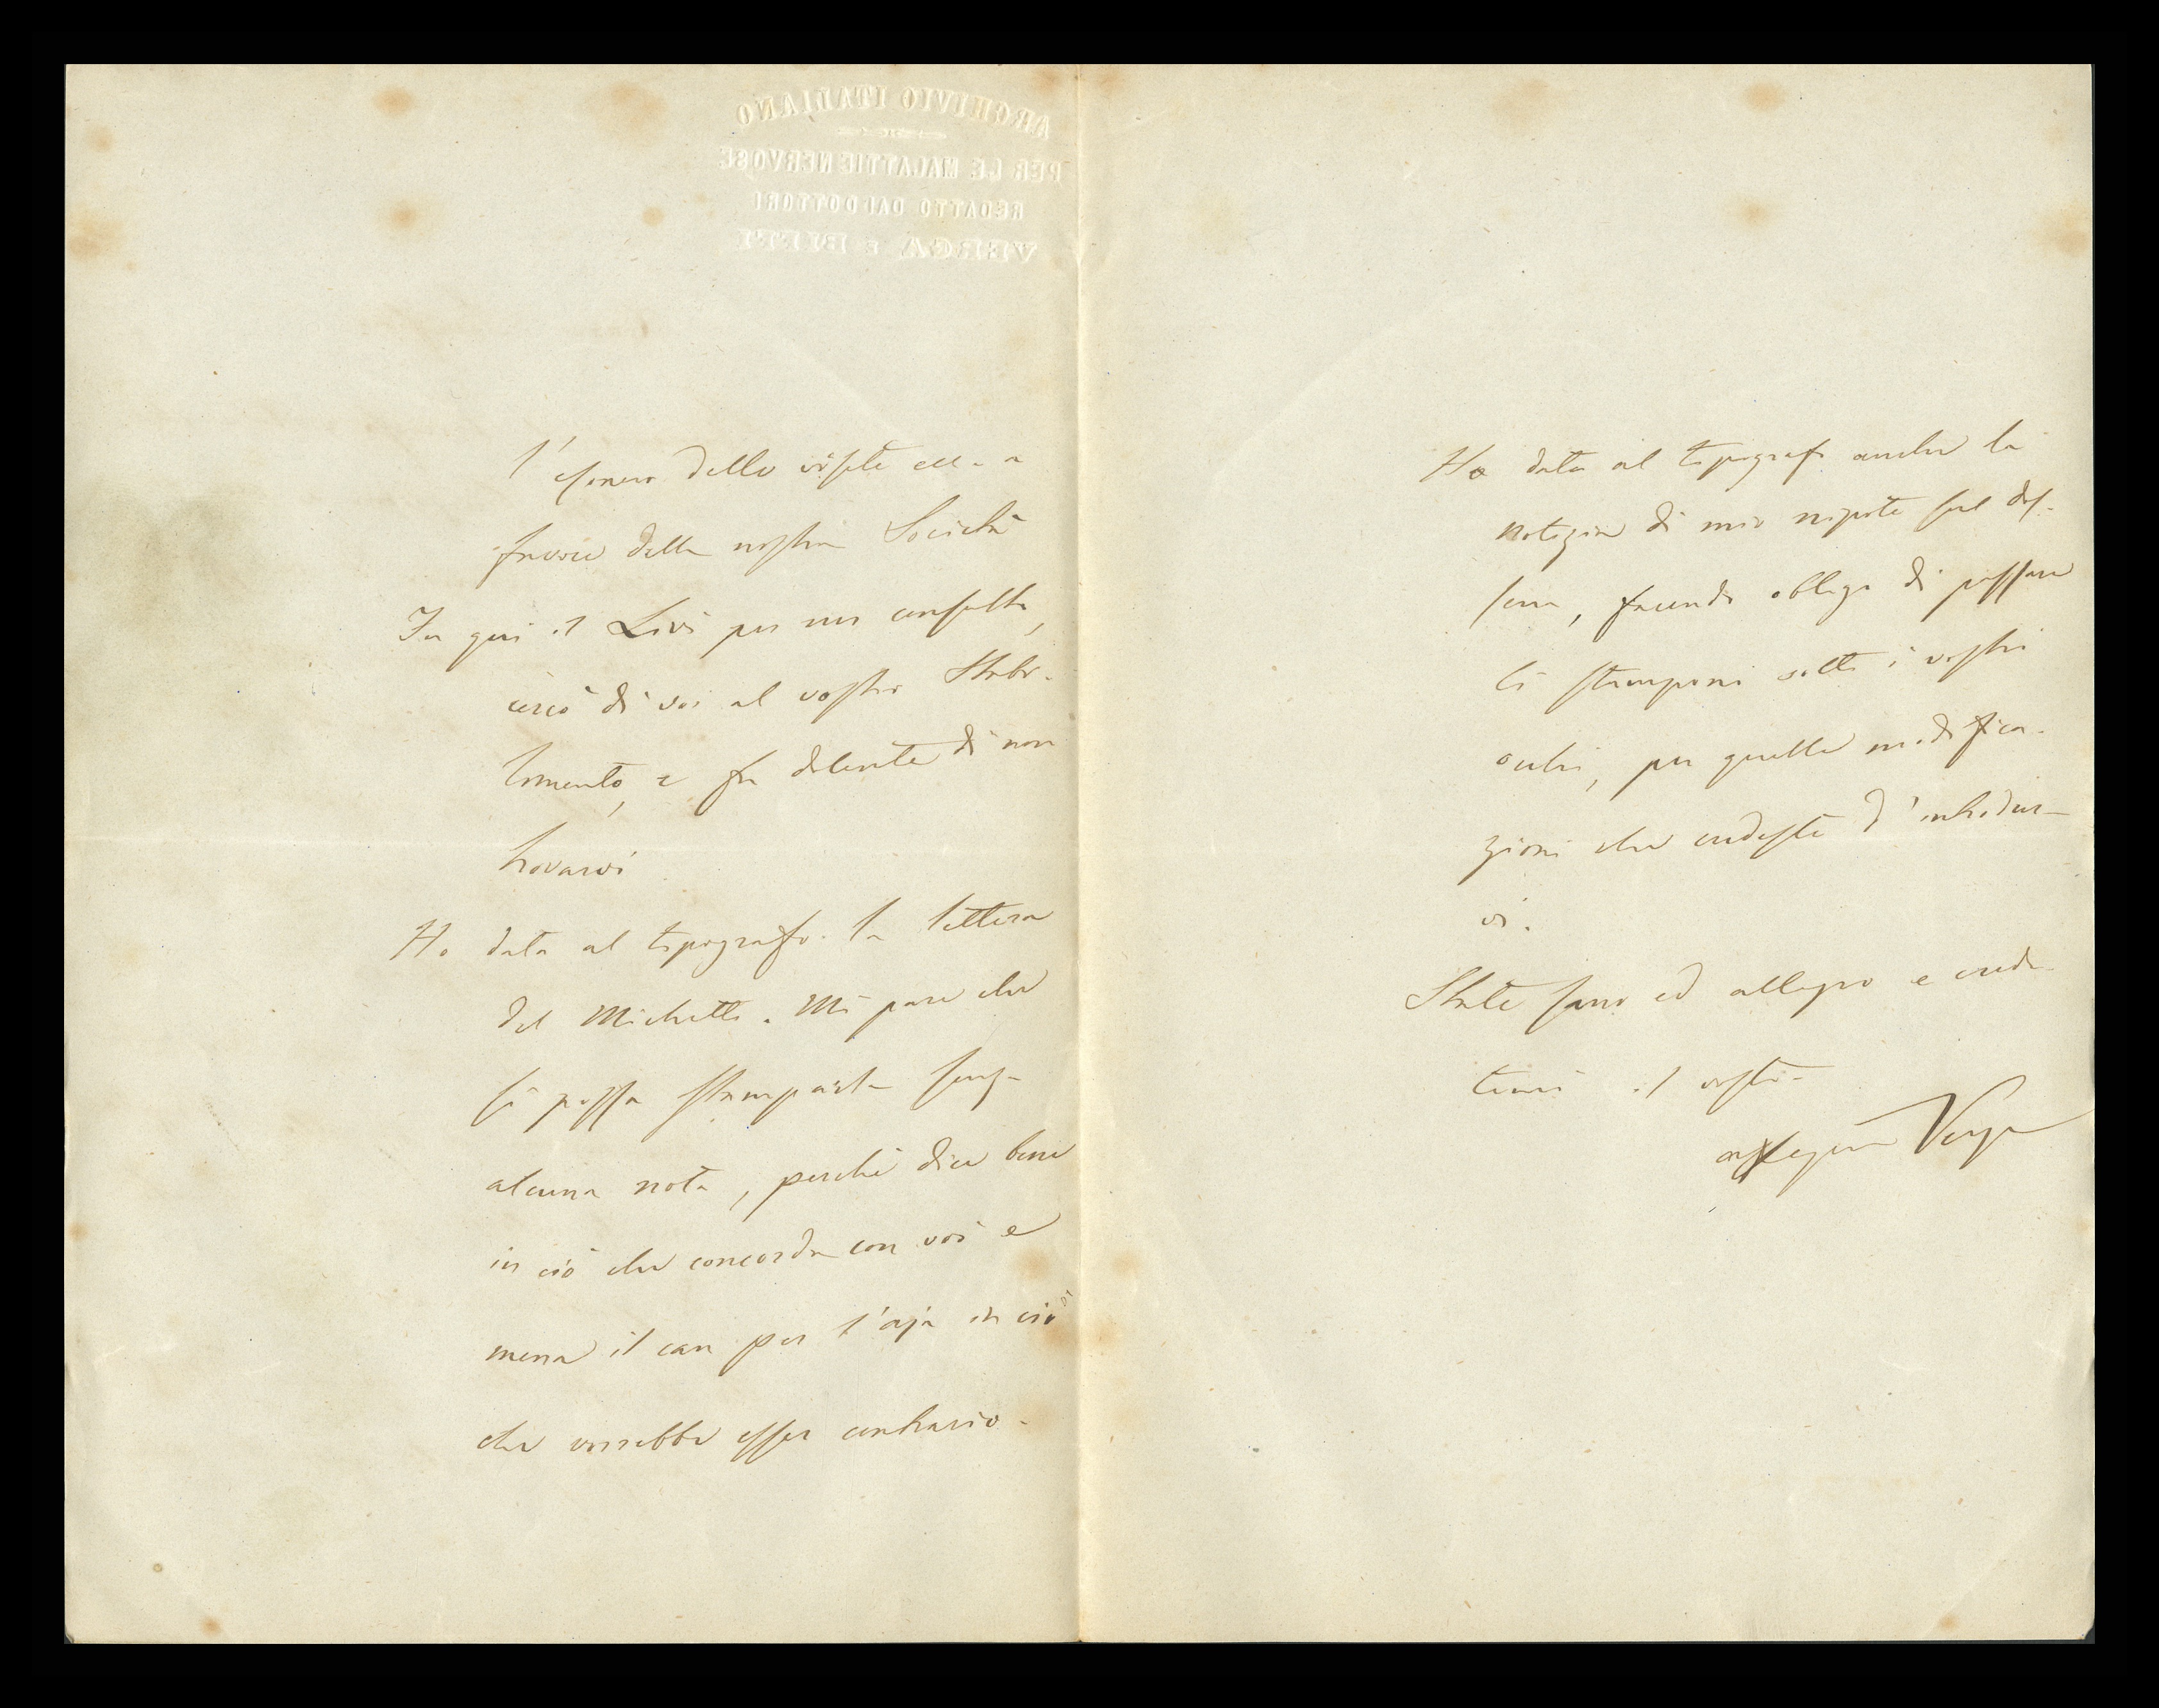 ARCHIVIO ITALIANO
PER LE MALATTIE NERVOSE
REDATTO DAI DOTTORI
VERGA E BIFFI
l'esonero delle visite ecc. a
favore della nostra Società
Fu qui il Livi per un consulto,
cercò di voi al vostro Stabi-
limento, e fu dolente di non
trovarvi
Ho data al tipografo la lettera
del Michetti. Mi pare che
si possa stamparla senza
alcuna nota, perchè dice bene
in ciò che concorda con voi e
mena il can per l'aja in ciò
che vorrebbe esser contrario.
Ho data al tipografo anche la
notizia di mio nipote sul
facendo obbligo di passare
li stamponi sotto i vostri
occhi, per quelle modifica-
zioni che credeste d'introdur-
vi.
State sano ed allegro e crede-
temi il vostro
Verga